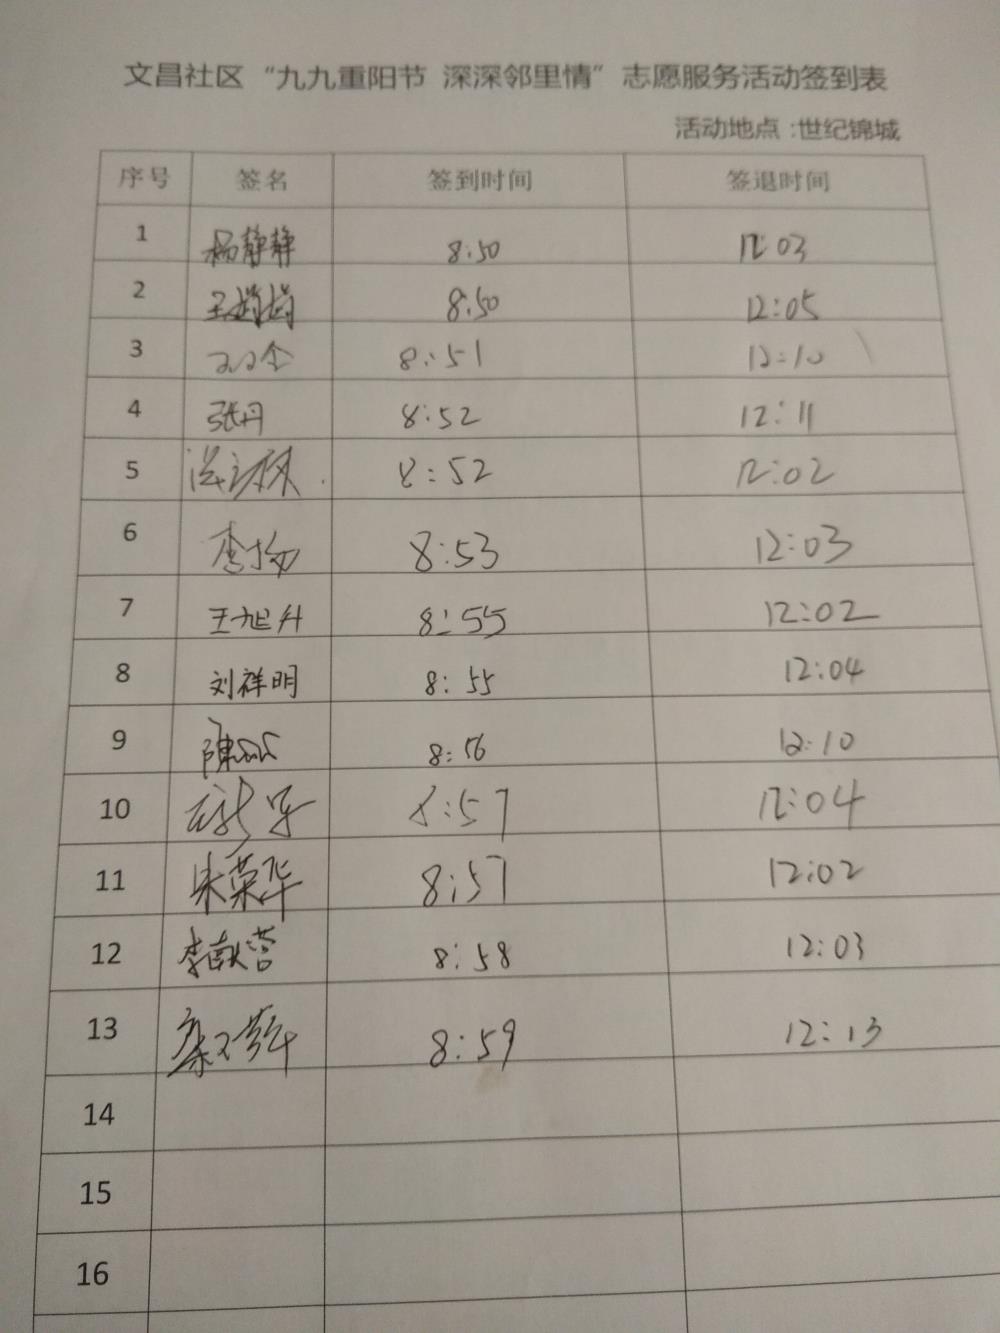 文昌社区“九九重阳节 深深邻里情”志愿服务活动签到表
活动地点:世纪锦城
序号 签名 签到时间 签退时间
1 杨静静 8:50 12:03
2 王娟娟 8:50 12:05
3 8:51 12:10
4 张丹 8:52 12:11
5 8:52 12:02
6 李扬 8:53 12:03
7 王旭升 8:55 12:02
8 刘祥明 8:55 12:04
9 8:56 12:10
10 8:57 12:04
11 朱荣华 8:57 12:02
12 李献营 8:58 12:03
13 8:59 12:13
14
15
16